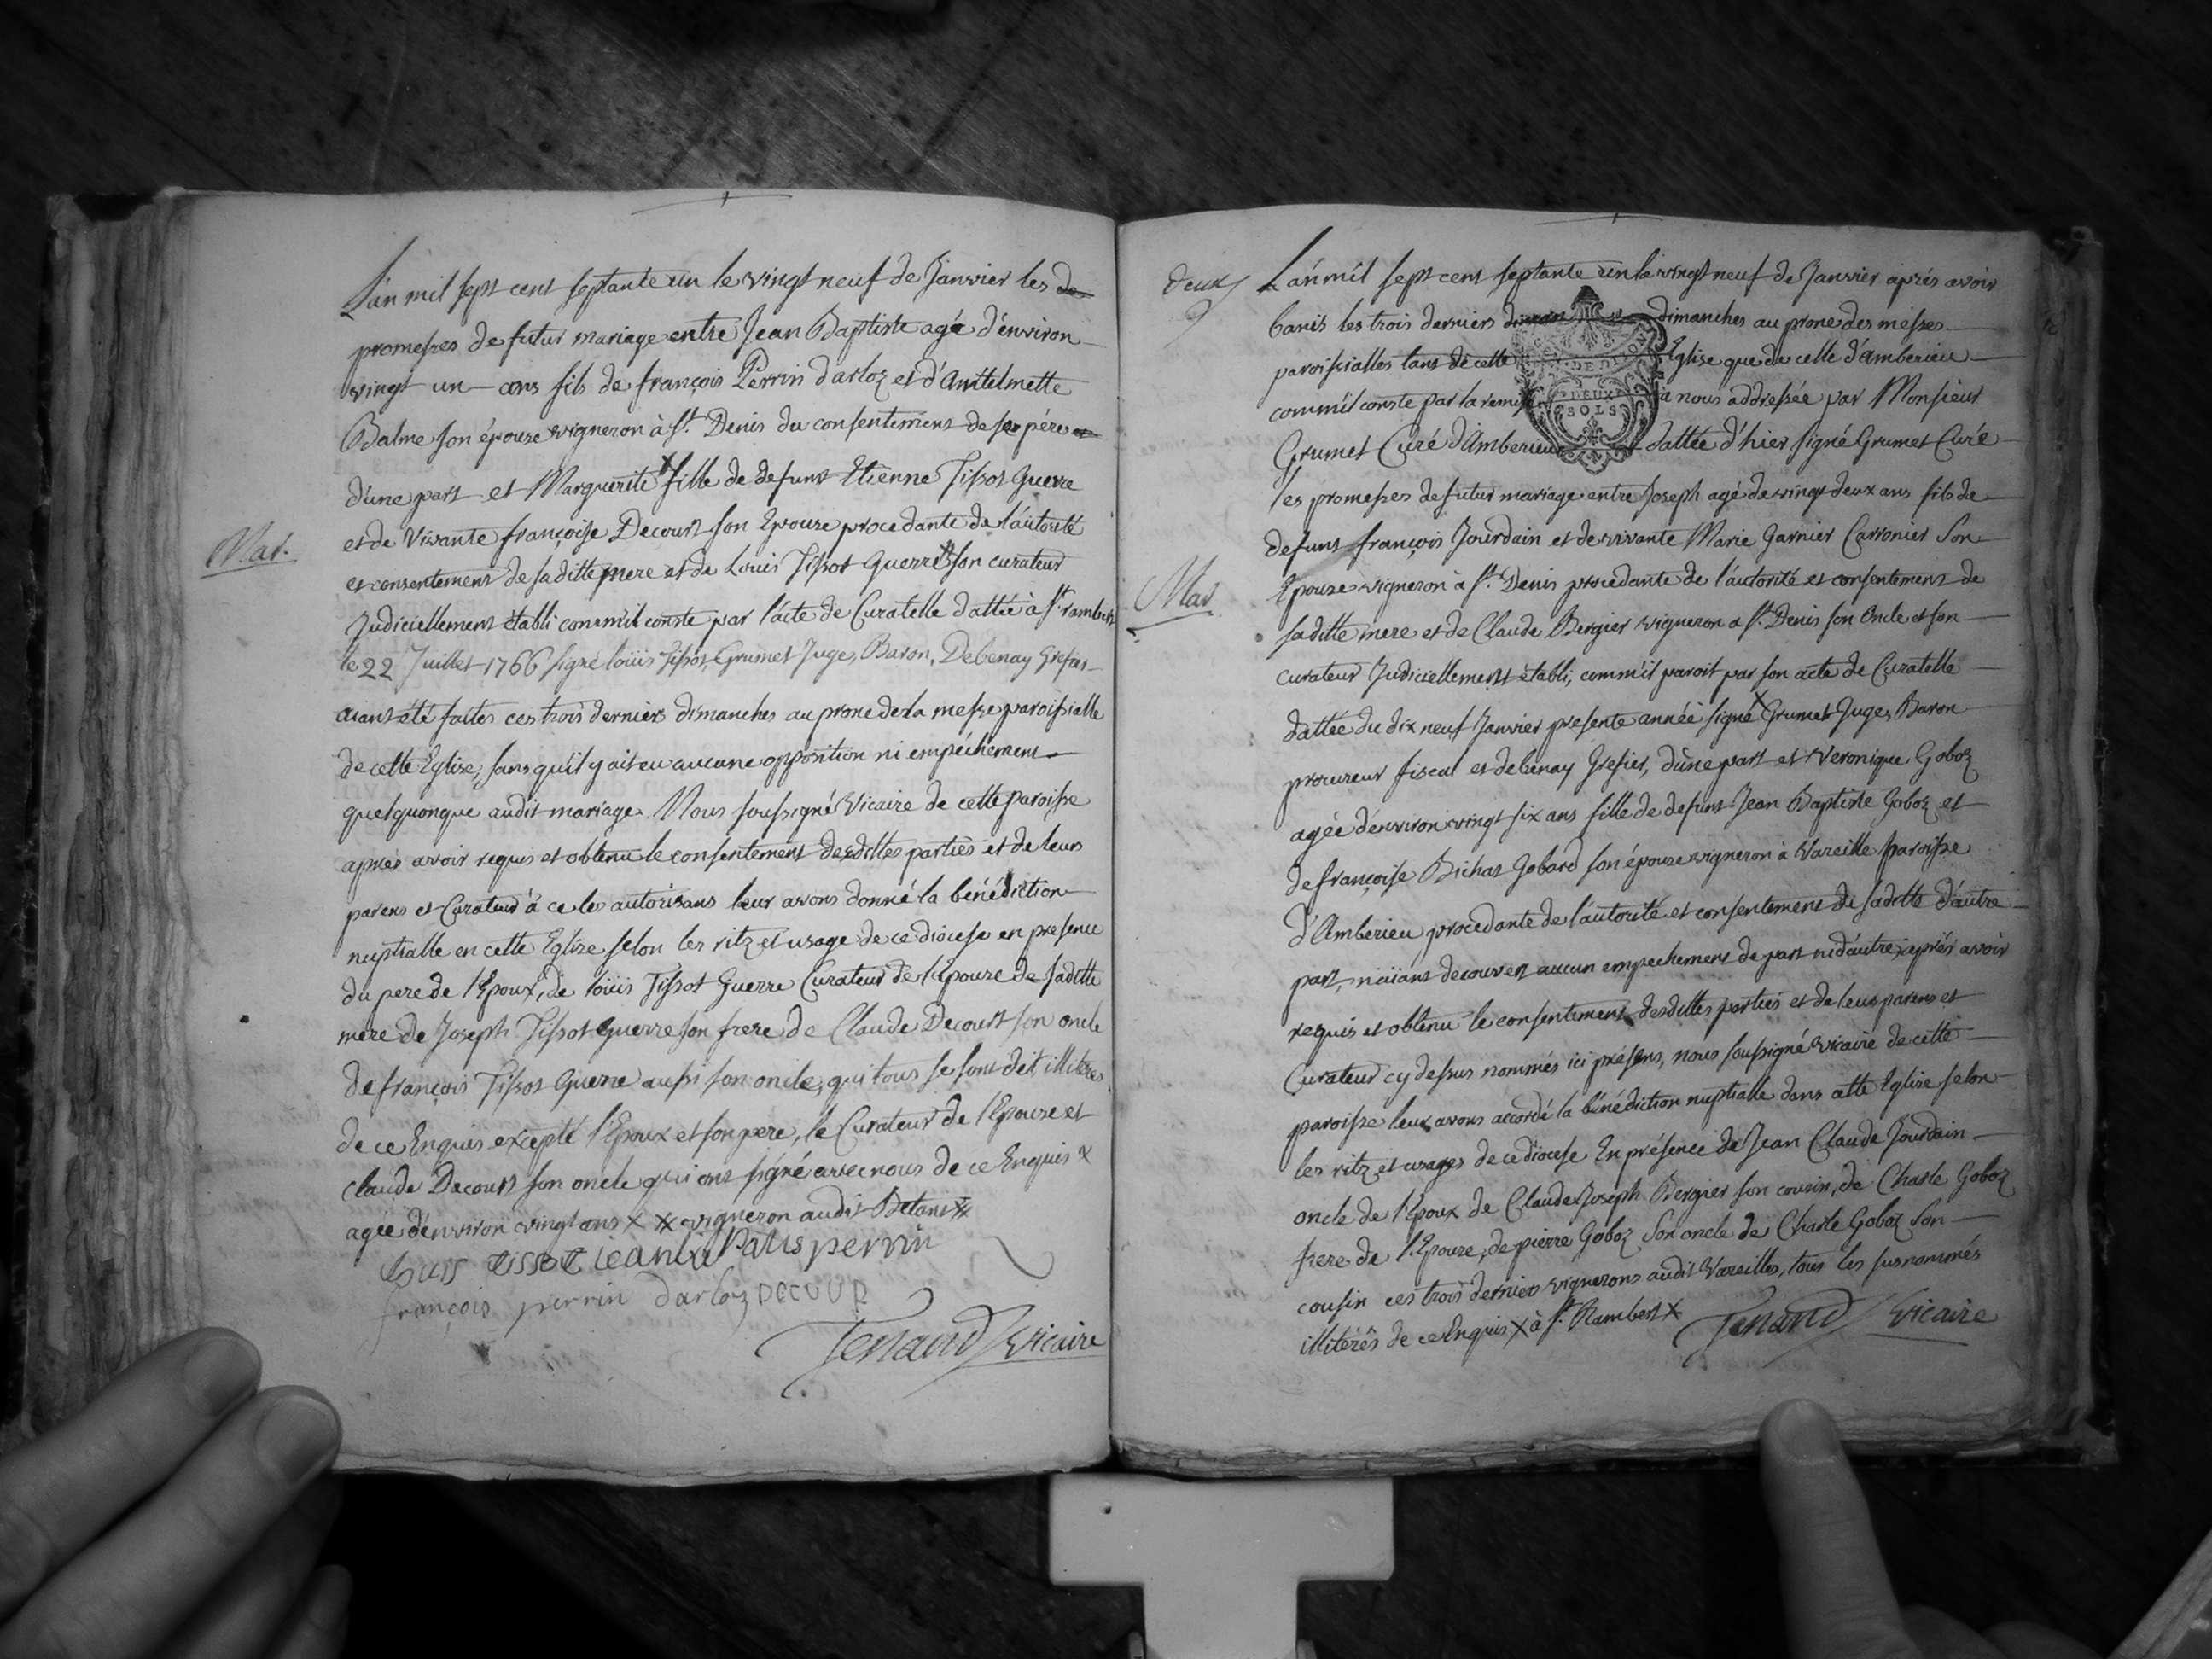 L'an mil sept cent septante un le vingt neuf de Janvier les de
promesses de futur mariage entre Jean Baptiste agé d'environ
vingt un ans fils de françois Perrin d'arloz et d'Anttelmette
Balme son épouse vigneron à St. Denis du consentement de son père
d'une part et Marguerite x fille de defunt Etienne Tissot Guerre
et de vivante françoise Decourt son Epouse procedante de l'autorité
Mar.
et consentement de sa ditte mere et de Louis Tissot Guerre xx son curateur
Judiciellement établi comm'il conste par l'acte de Curatelle dattée à St. rambert
le 22 Juillet 1766 signé loüis Tissot, Grumet Juge, Baron, Debenay Grefier
aiant été faites ces trois derniers dimanches au prone de la messe paroissialle
de cette Eglise, sans qu'il y ait eu aucune opposition ni empéchement
quelquonque audit mariage. Nous soussigné Vicaire de cette paroisse
aprés avoir requis et obtenu le consentement desdittes parties et de leurs
parens et Curateur à ce les autorisans leur avons donné la bénédiction
nuptialle en cette Eglise selon les ritz et usage de ce diocese en presence
du pere de l'Epoux, de loüis Tissot Guerre Curateur de l'Epouse de sa ditte
mere de Joseph Tissot Guerre son frere de Claude Decourt son oncle
de françois Tissot Guerre aussi son oncle, qui tous se sont dit illiteres
de ce Enquis excepté l'Epoux et son pere, le Curateur de l'Epouse et
claude Decourt son oncle qui ont signé avec nous de ce Enquis x
agée d'environ vingt ans x xx vigneron audit Betans xx
Luis tissot iean perrin
françois perrin darloz DECOUR
Tenand Vicaire
deux
L'an mil sept cent septante un le vingt neuf de Janvier aprés avoir
banis les trois derniers dimanches au prone des messes
paroissialles tant de cette Eglise que de celle d'amberieu
DEUX
SOLS
comm'il conste par la remise a nous addressée par Monsieur
Grumet Curé d'Amberieu dattée d'hier signé Grumet Curé
les promesses de futur mariage entre Joseph agé de vingt deux ans fils de
defunt françois Jourdain et de vivante Marie Garnier Carronier Son
Mar
Epouse vigneron à St. Denis procedante de l'autorité et consentement de
sa ditte mere et de Claude Bergier vigneron a St. Denis son Oncle et son
curateur Judiciellement établi, comm'il paroit par son acte de Curatelle
dattée du dix neuf Janvier presente année signé x Grumet Juge, Baron
procureur fiscal et debenay Grefier, d'une part et Veronique Goboz
agée d'environ vingt six ans fille de defunt Jean Baptiste Goboz et
de françoise Bichat Gobard son épouse vigneron à Vareille paroisse
d'Amberieu procedante de l'autorité et consentement de sa ditte d'autre
part, n'aiiant decouvert aucun empechement de part ni d'autre, aprés avoir
requis et obtenu le consentement desdittes parties et de leurs parens et
Curateur cy dessus nommés ici présens, nous soussigné vicaire de cette
paroisse leur avons accordé la bénédiction nuptialle dans cette Eglise selon
les ritz et usages de ce diocese En présence de Jean Claude Jourdain
oncle de l'Epoux de Claude Joseph Bergier son cousin, de Charle Goboz
frere de l'Epouse, de pierre Goboz Son oncle de Charle Goboz Son
cousin ces trois derniers vignerons audit Vareilles, tous les susnommés
illitérés de ce Enquis x à St. Rambert x
Tenand Vicaire